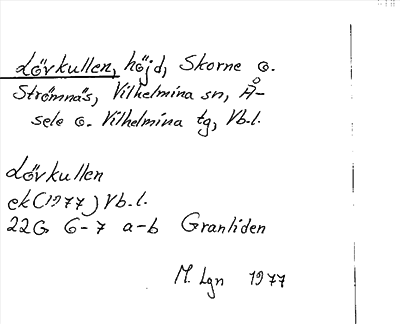 Lövkullen, höjd, Skorne o.
Strömnäs, Vilhelmina sn, Å-
sele o. Vilhelmina tg, Vb.l.
Lövkullen
ek(1977) Vb.l.
22G 6-7 a-b Granliden
M. Lgn 1977